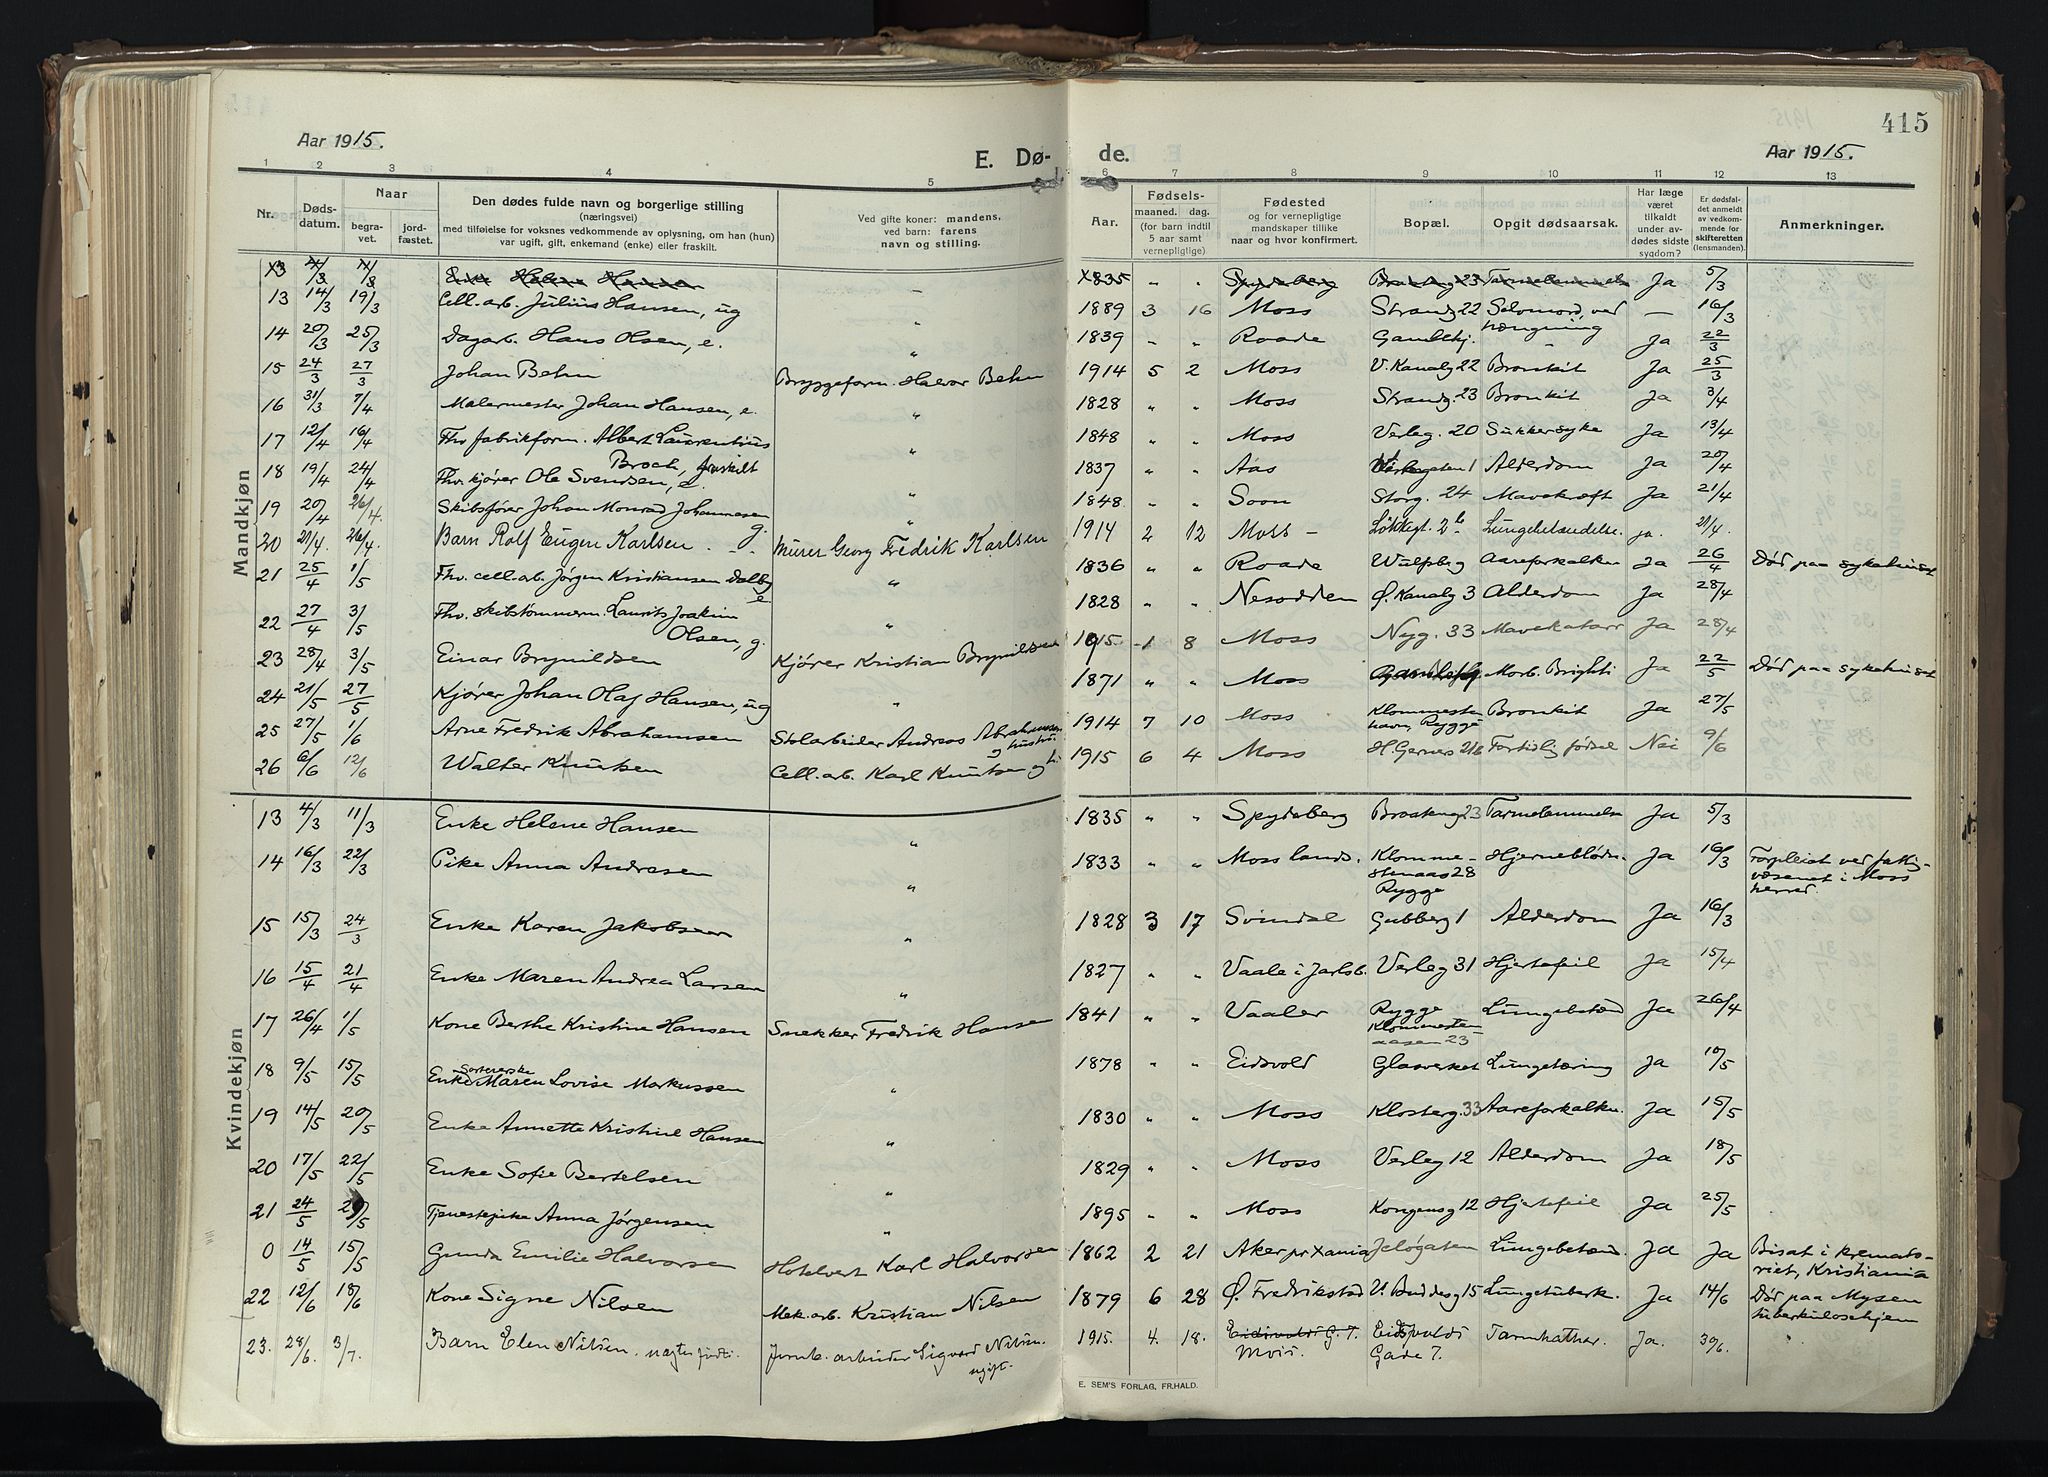 415
Aar 1915. E. Dø- de. Aar 1915.
1 2 3 4 5 6 7 8 9 10 11 12 13
Nr. Dødsdatum. Naar begravet. jordfæstet. Den dødes fulde navn og borgerlige stilling (næringsvei) med tilføielse for voksnes vedkommende av oplysning, om han (hun) var ugift, gift, enkemand (enke) eller fraskilt. Ved gifte koner: mandens, ved barn: farens navn og stilling. Aar. Fødsels- maaned. dag. (for barn indtil 5 aar samt vernepligtige) Fødested og for vernepligtige mandskaper tillike naar og hvor konfirmert. Bopæl. Opgit dødsaarsak. Har læge været tilkaldt under avdødes sidste sygdom? Er dødsfaldet anmeldt av vedkommende for skifteretten (lensmanden). Anmerkninger.
Mandkjøn
13 4/3 11/3 Enke Helene Hansen - 1835 " " Spydeberg Braateng 23 Tarmelammelse Ja 5/3
13 14/3 19/3 Cell.arb. Julius Hansen, ug " 1889 3 16 Moss Strandg 22 Selvmord, ved hængning — 16/3
14 20/3 25/3 Dagarb. Hans Olsen, e. " 1839 - " Raade Gamlehj. - Ja 22/3
15 24/3 27/3 Johan Behn Bryggeform. Halvor Behn 1914 5 2 Moss V. Kanalg 22 Bronkit Ja 25/3
16 31/3 7/4 Malermester Johan Hansen, e. " 1828 " " Moss Strandg. 23 Bronkit Ja 3/4
17 12/4 16/4 Fhv. fabrikform. Albert Laurentius Broch, fraskilt " 1848 " " Moss Verleg. 20 Sukkersyke Ja 13/4
18 19/4 24/4 Fhv. kjører Ole Svendsen, e. " 1837 " " Aas Vi 1 Alderdom Ja 20/4
19 20/4 26/4. Skibsfører Johan Monrad Johannesen g. " 1848 " " Soon Storg. 24 Mavekræft Ja 21/4
20 21/4. 26/4. Barn Rolf Eugen Karlsen - " - Murer Georg Fredrik Karlsen 1914 2 12 Moss - Løkkegt. 2b Lungebetændelse. ja. 21/4.
21 25/4 1/5 Fhv. cell.arb. Jørgen Kristiansen Dalby e " 1836 " " Raade Wulfsbg Aareforkalkn Ja 26/4 Død paa sykehuset
22 27/4 3/5 Fhv. skibstømmerm. Laurits Joakim Olsen, g. " 1828 " " Nesodden Ø. Kanalg 3 Alderdom Ja 28/4
23 28/4 3/5 Einar Brynildsen Kjører Kristian Brynildsen 1915 1 8 Moss Nyg. 33 Mavekatarr Ja 28/4
24 21/5 27/5 Kjører Johan Olaf Hansen, ug " 1871 " " Moss Gamlehg Morb. Brighti Ja 22/5 Død paa sykehuset
25 27/5 1/6 Arne Fredrik Abrahamsen Stolarbeider Andreas Abrahamsen og hustru 1914 7 10 Moss Klommesten havn, Rygge Bronkit Ja 27/5
26 6/6 12/6 Walter Knutsen Cell.arb. Karl Knutsen og h. 1915 6 4 Moss H. Gerners 21b Fortidlig fødsel Nei 9/6
Kvindekjøn
13 4/3 11/3 Enke Helene Hansen " 1835 " " Spydeberg Braateng 23 Tarmelammelse Ja 5/3
14 16/3 22/3 Pike Anna Andresen " 1833 " " Moss lands. Klommestenaas 28 Rygge Hjerneblødn. Ja 16/3 Forpleiet ved fattigvæsenet i Moss herred.
15 15/3 24/3 Enke Karen Jakobsen " 1828 3 17 Svindal Gubberg 1 Alderdom Ja 16/3
16 15/4 21/4 Enke Maren Andrea Larsen " 1827 " " Vaale i Jarlsb. Verleg 31 Hjertefeil Ja 15/4
17 26/4 1/5 Kone Berthe Kristine Hansen Snekker Fredrik Hansen 1841 " " Vaaler Rygge Klommestenaasen 23 Lungebetænd Ja 26/4
18 9/5 15/5 Enke Sorterske Maren Lovise Markussen " 1878 " " Eidsvold Glasverket Lungetæring Ja 10/5
19 14/5 20/5 Enke Annette Kristine Hansen " 1830 " " Moss Klosterg. 33 Aareforkalkn. Ja 15/5
20 17/5 22/5 Enke Sofie Bertelsen " 1829 " " Moss Verleg 12 Alderdom Ja 18/5
21 24/5 29/5 Tjenestepike Anna Jørgensen " 1895 " " Moss Kongensg 12 Hjertefeil Ja 25/5
0 14/5 15/5 Gunda Emilie Halvorsen Hotelvert Karl Halvorsen 1862 2 21 Aker pr Xania Jeløgaten Lungebetænd. Ja Ja Bisat i krematoriet, Kristiania
22 12/6 18/6 Kone Signe Nilsen Mek.arb. Kristian Nilsen 1879 6 28 Ø. Fredrikstad V. Buddesg 15 Lungetuberk. Ja 14/6 Død paa Mysen tuberkulosehjem
23. 28/6. 3/7. Barn Elen Nilsen. uægte født. Jernb. arbeider Sigvard Nilsen. ugift. 1915. 4. 18. Eidsvolds G. 7. Moss. Eidsvolds Gade 7. Tarmkathar. Ja. 30/6.
E. SEM'S FORLAG, FR.HALD.